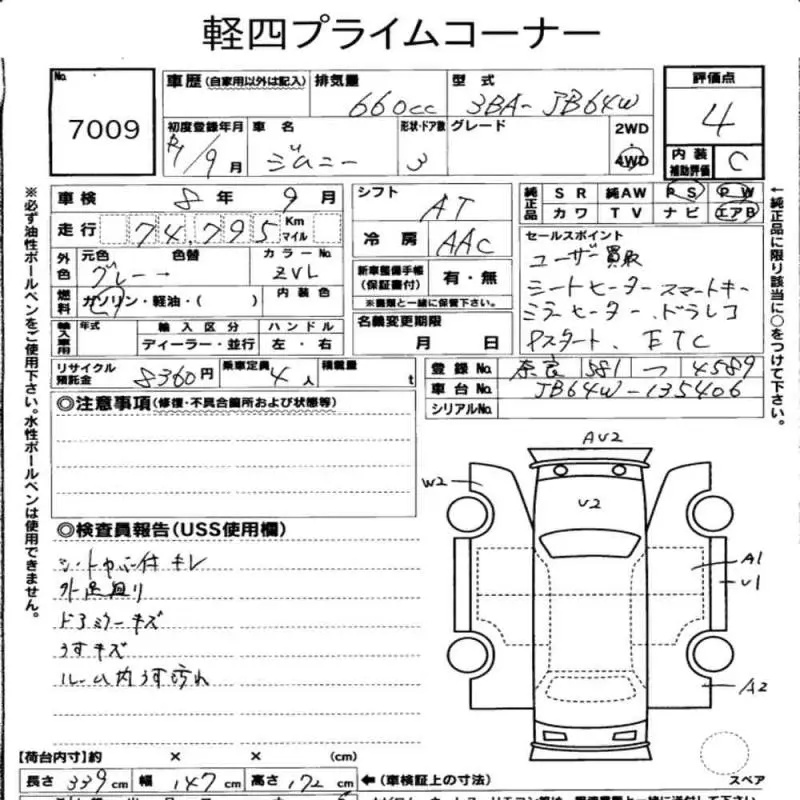 軽四プライムコーナー
No. 7009
車歴（自家用以外は記入） 排気量 660cc 型式 3BA-JB64W
初度登録年月 R1/9月 車名 ジムニー 形状・ドア数 3 グレード 2WD 4WD
評価点 4
内装補助評価 C
車検 8年 9月
走行 74,795 Km マイル
外色 元色 グレー 色替 → カラーNo. ZVL
燃料 ガソリン・軽油・（ ） 内装色
輸入車用 年式 輸入区分 ディーラー・並行 ハンドル 左・右
シフト AT
冷房 AAC
新車整備手帳（保証書付） 有・無
※書類と一緒に保管下さい。
名義変更期限 月 日
純正品 SR 純AW PS PW
カワ TV ナビ エアB
セールスポイント
ユーザー買取
シートヒーター スマートキー
ミラーヒーター、ドラレコ
Pスタート、ETC
←純正品に限り該当に○をつけて下さい。
※必ず油性ボールペンをご使用下さい。水性ボールペンは使用できません。
リサイクル預託金 8360円 乗車定員 4人 積載量 t
登録No. 奈良 581 つ 4589
車台No. JB64W-135406
シリアルNo.
◎注意事項（修復・不具合箇所および状態等）
◎検査員報告（USS使用欄）
シートカバー付 キレ
外足廻り
ドアミラーキズ
うすキズ
ルーム内うす汚れ
AU2
W2
U2
A1
U1
A2
スペア
【荷台内寸】約 × × （cm）
長さ 339cm 幅 147cm 高さ 172cm ←（車検証上の寸法）